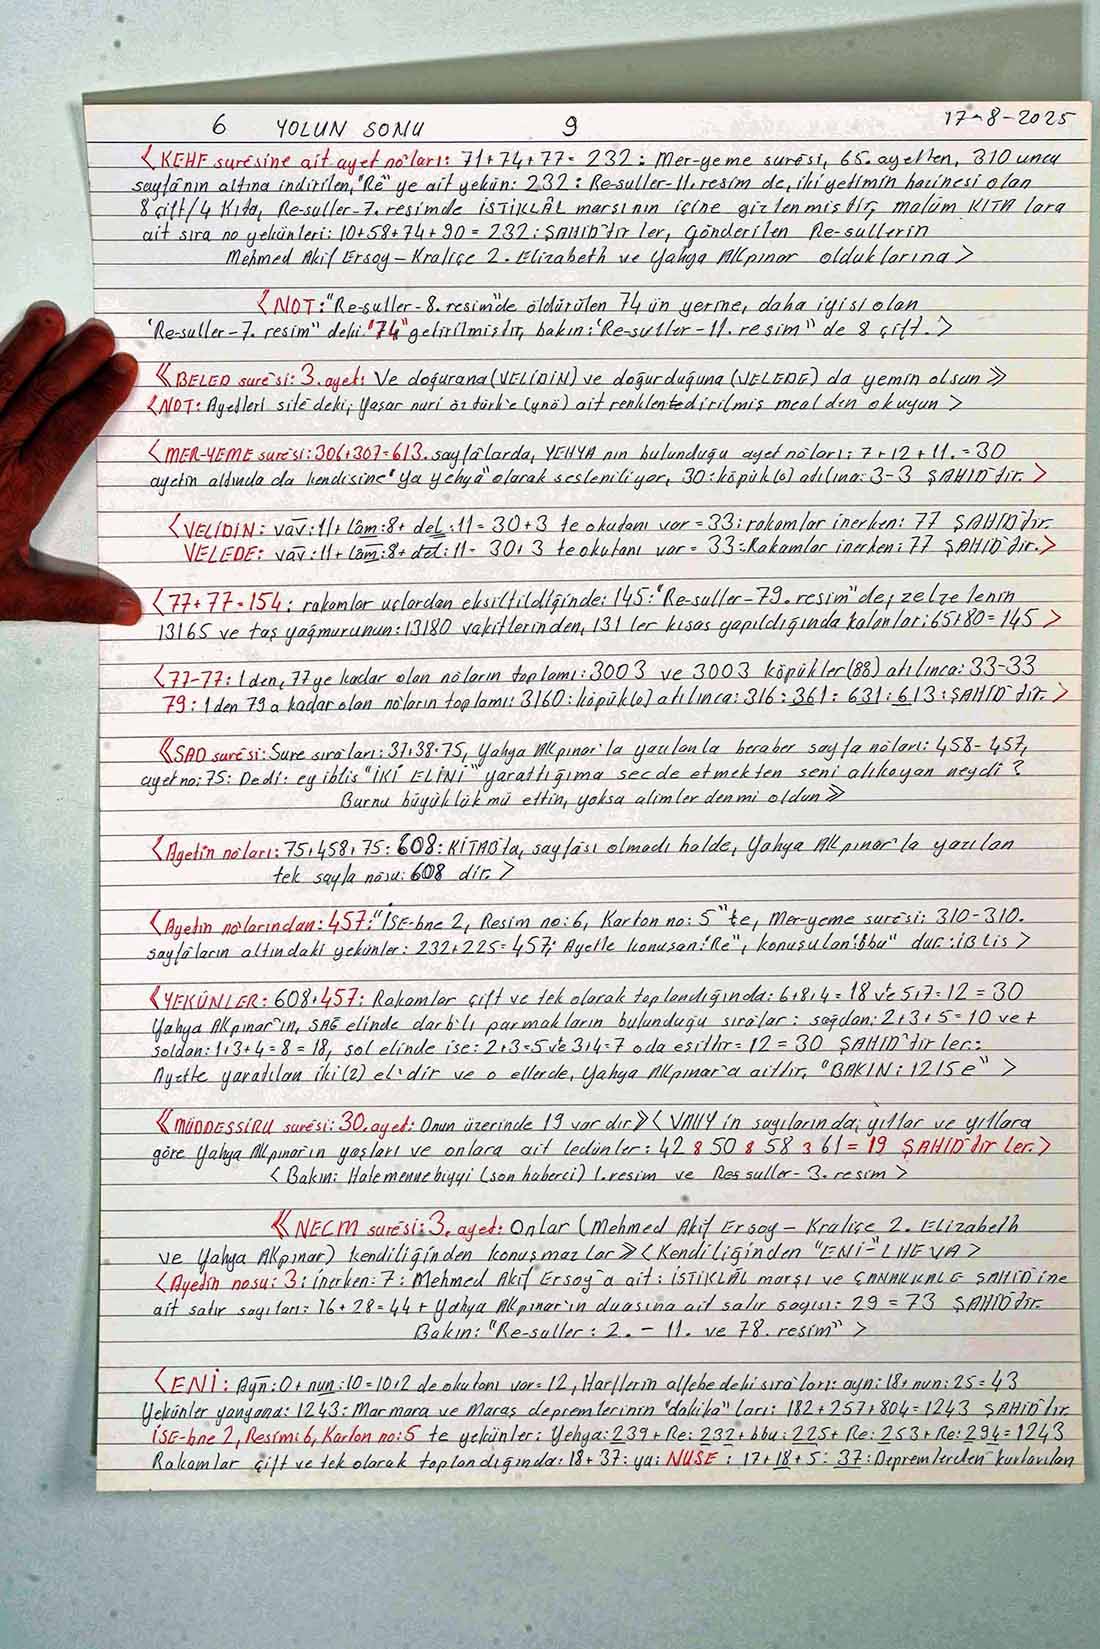 6 YOLUN SONU 9 17-8-2025
<KEHF suresine ait ayet no'ları: 71+74+77= 232: Mer-yeme suresi, 65. ayetten, 310 uncu
sayfa'nın altına indirilen, "Rê" ye ait yekün: 232: Re-suller-11. resim de, iki yetimin hazinesi olan
8 çift/4 Kıta, Re-suller-7. resimde İSTİKLÂL marşı nın içine gizlenmiştir, malûm KITA lara
ait sıra no yekünleri: 10+58+74+90 = 232: ŞAHİD'tir ler, Gönderilen Re-sullerin
Mehmed Akif Ersoy - Kraliçe 2. Elizabeth ve Yahya AKpınar olduklarına>
<NOT: "Re-suller-8. resim"de öldürülen 74 ün yerine, daha iyisi olan
"Re-suller-7. resim" deki "74" getirilmiştir, bakın: "Re-suller-11. resim" de 8 çift.>
«BELED suresi: 3. ayet: Ve doğurana (VELİDİN) ve doğurduğuna (VELEDE) da yemin olsun»
<NOT: Ayetleri sitedeki; Yaşar nuri öztürk'e (ynö) ait renklentedirilmiş meal den okuyun>
<MER-YEME suresi: 306+307=613. sayfâlarda, YEHYA nın bulunduğu ayet no'ları: 7+12+11. = 30
ayetin altında da kendisine "Ya Yehya" olarak sesleniliyor, 30: köpük(0) atılına: 3-3 ŞAHİD'tir.>
<VELİDİN: vav: 11+ lâm: 8+ del: 11= 30+3 te okutanı var = 33: rakamlar inerken: 77 ŞAHİD'tir.
VELEDE: vav: 11+ lâm: 8+ del: 11= 30+3 te okutanı var = 33: Rakamlar inerken: 77 ŞAHİD'tir.>
<77+77=154: rakamlar uçlardan eksiltildiğinde: 145: "Re-suller-79. resim" de; zelzelenin
13165 ve taş yağmurunun: 13180 vakitlerinden, 131 ler kısas yapıldığında kalanlar: 65+80= 145>
<77-77: 1 den, 77 ye kadar olan no'ların toplamı: 3003 ve 3003 köpükler (00) atılınca: 33-33
79: 1 den 79 a kadar olan no'ların toplamı: 3160: köpük(0) atılınca: 316: 361: 631: 613: ŞAHİD'tir.>
«SAD suresi: Sure sıra'ları: 37+38=75, Yahya AKpınar'la yazılanla beraber sayfa no'ları: 458-457,
ayet no: 75: Dedi: ey iblis "İKİ ELİNİ" yarattığıma secde etmekten seni alıkoyan neydi?
Burnu büyüklük mü ettin, yoksa alimler den mi oldun»
<Ayetin no'ları: 75+458+75: 608: KİTAB'ta, sayfası olmadı halde, Yahya AKpınar'la yazılan
tek sayfa nosu: 608 dir.>
<Ayetin no'larından: 457: "İSE-bne 2, Resim no: 6, Karton no: 5" te, Mer-yeme suresi: 310-310.
sayfâların altındaki yekünler: 232+225=457; Ayetle konuşan: "Re", konuşulan: "bbu" dur: iBLis>
<YEKÜNLER: 608+457: Rakamlar çift ve tek olarak toplandığında: 6+8+4=18 ve 5+7=12 = 30
Yahya AKpınar'ın, SAĞ elinde darbîli parmakların bulunduğu sıralar: sağdan: 2+3+5=10 ve +
soldan: 1+3+4=8 = 18, sol elinde ise: 2+3=5 ve 3+4=7 o da eşittir= 12 = 30 ŞAHİD'tir ler:
Ayette yaratılan iki(2) el'dir ve o ellerde, Yahya AKpınar'a aittir, "BAKIN: 1215e">
«MÜDDESSİRU suresi: 30. ayet: Onun üzerinde 19 var dır» <VAHY in sayılarında; yıllar ve yıllara
göre Yahya AKpınarın yaşları ve onlara ait ledünler: 42 8 50 8 58 3 61 = 19 ŞAHİD'tir ler.>
<Bakın: Halemennebiyyi (son haberci) 1. resim ve Res suller-3. resim>
«NECM suresi: 3. ayet: Onlar (Mehmed Akif Ersoy - Kraliçe 2. Elizabeth
ve Yahya AKpınar) kendiliğinden konuşmazlar» <Kendiliğinden "ENİ-" LHEVA>
<Ayetin nosu: 3: inerken: 7: Mehmed Akif Ersoy'a ait: İSTİKLÂL marşı ve ÇANAKKALE ŞAHİD'ine
ait satır sayıları: 16+28=44 + Yahya AKpınar'ın duasına ait satır sayısı: 29 = 73 ŞAHİD'tir.
Bakın: "Re-suller: 2. - 11. ve 78. resim" >
<ENİ: Ayn: 0+ nun: 10=10+2 de okutanı var= 12, Harflerin alfebe deki sıra'ları: ayn: 18+ nun: 25= 43
Yekünler yanyana: 1243: Marmara ve Maraş depremlerinin "dakika" ları: 182+257+804=1243 ŞAHİD'tir.
İSE-bne 2, Resim: 6, Karton no: 5 te yekünler: Yehya: 239+ Re: 232+ bbu: 225+ Re: 253+ Re: 294=1243
Rakamlar çift ve tek olarak toplandığında: 18+37: ya; NUSE: 17+18+5: 37: Depremlerden kurtarılan